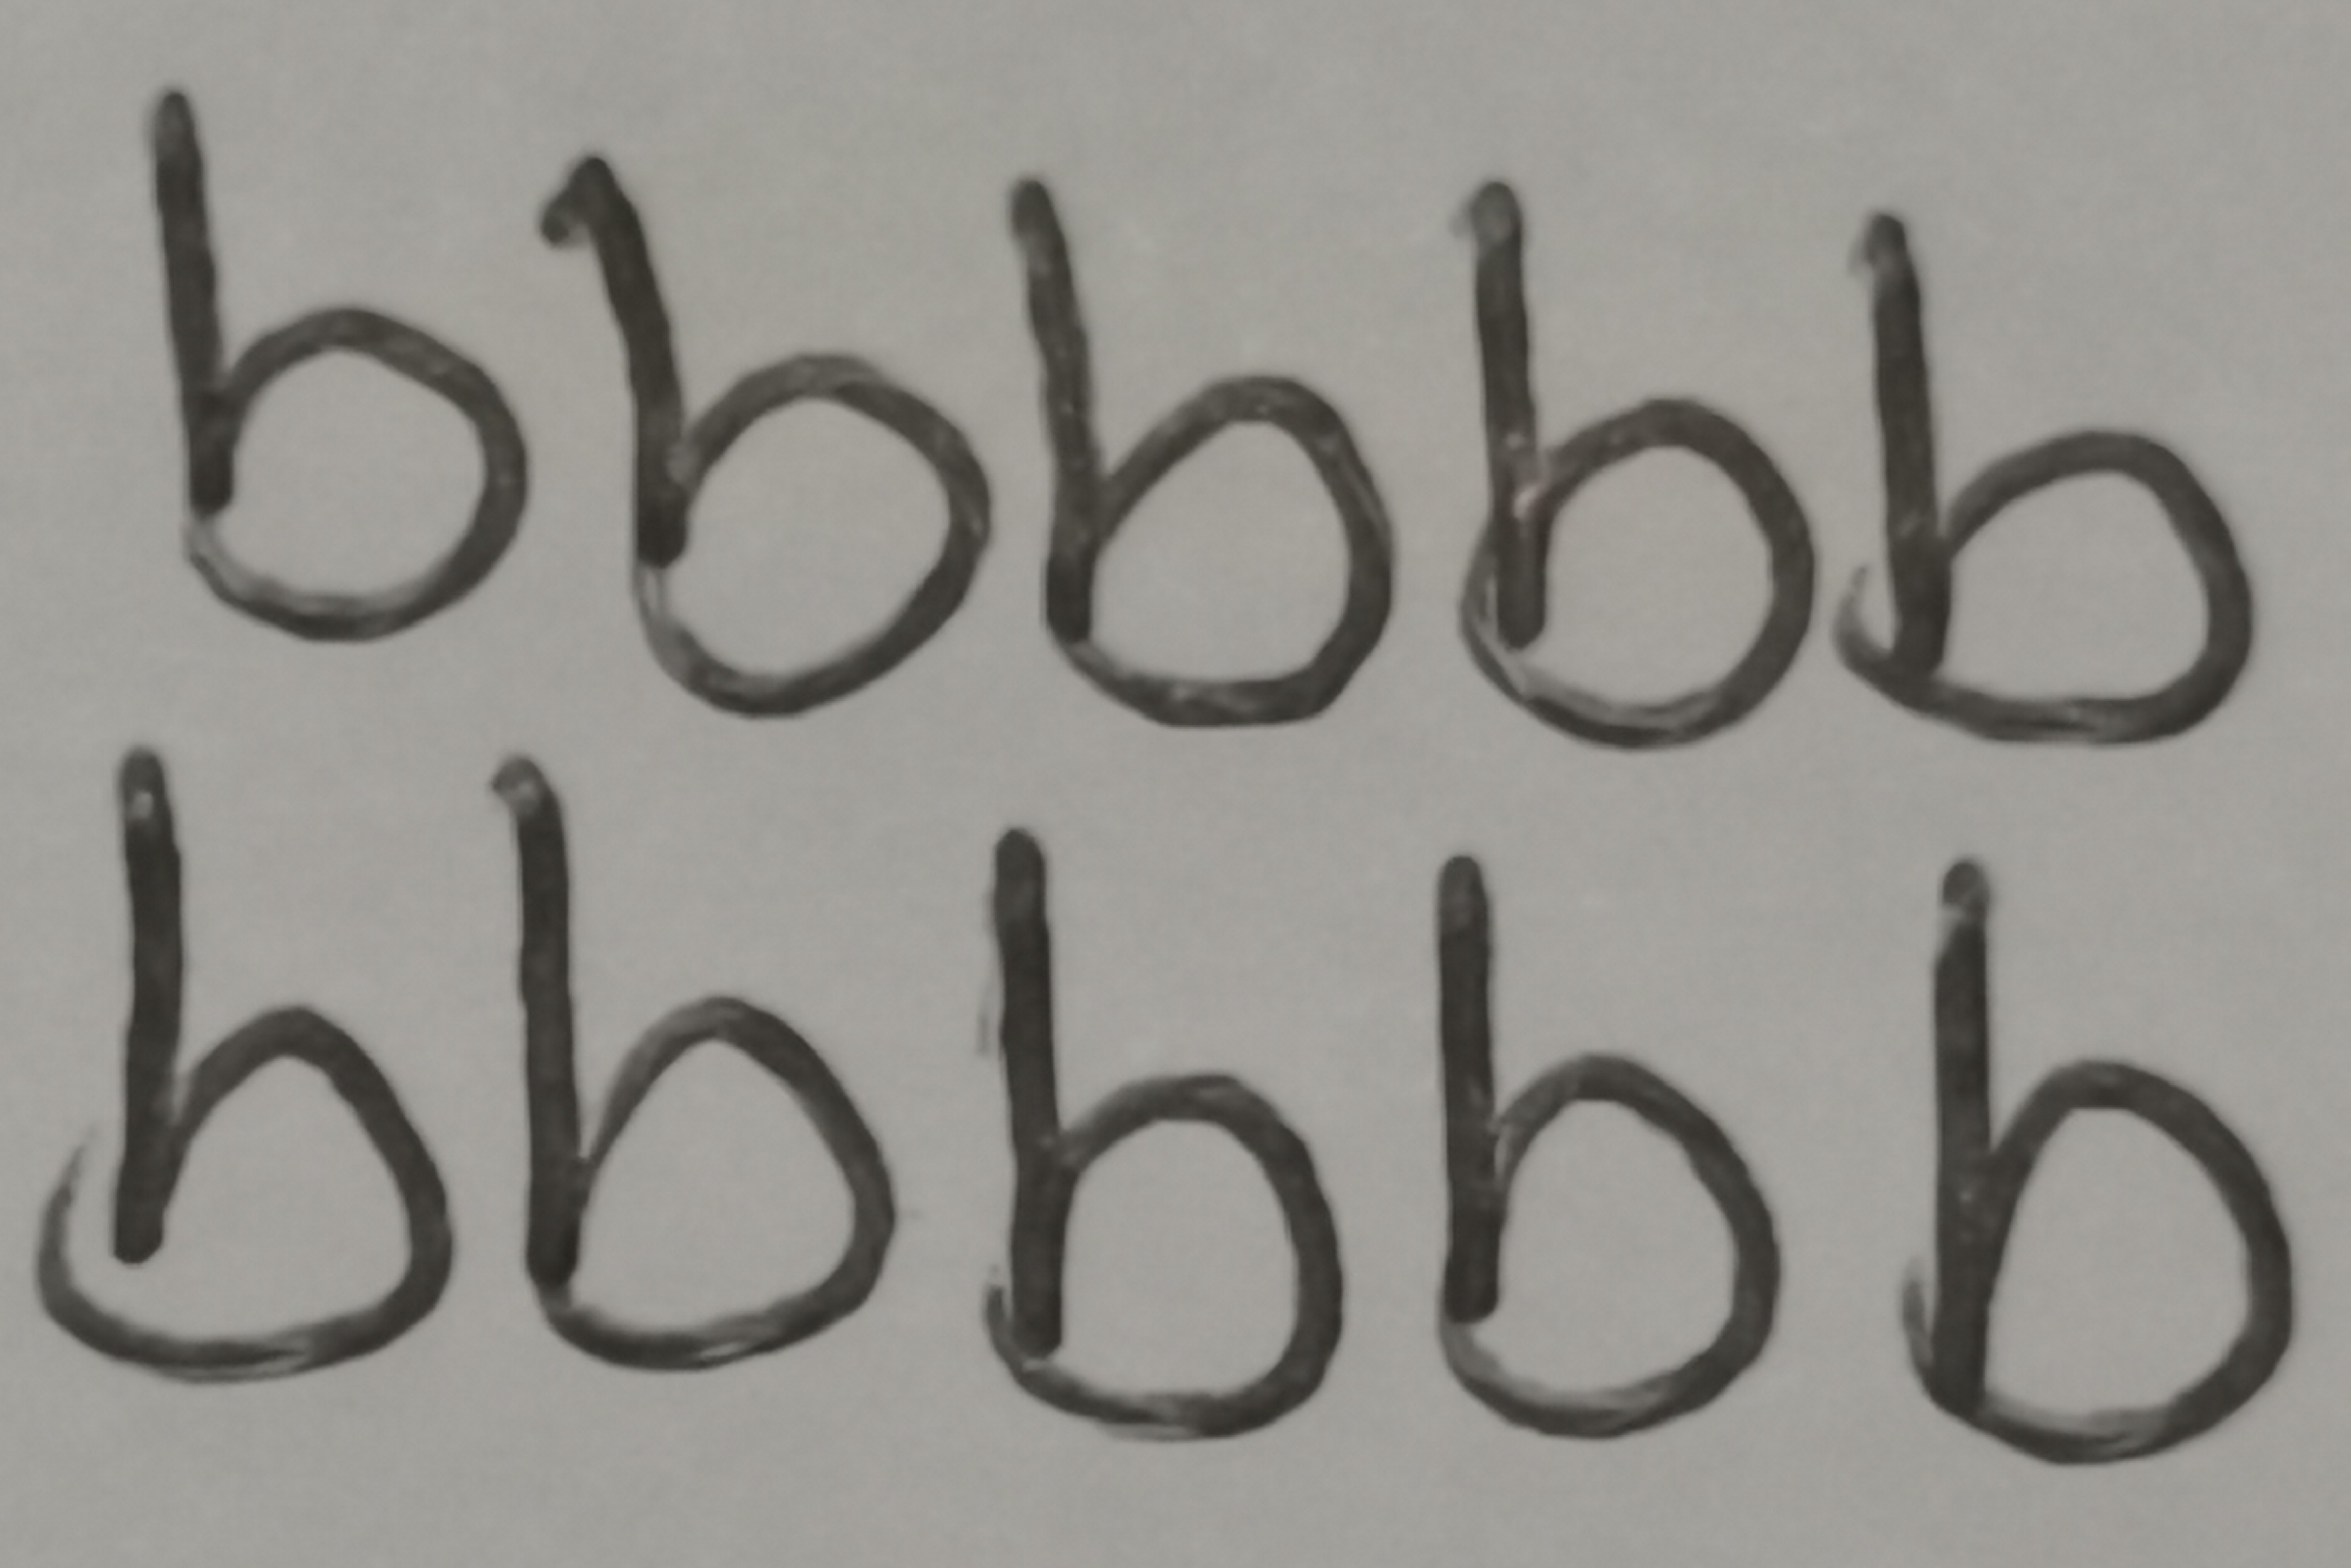 b b b b b
b b b b b